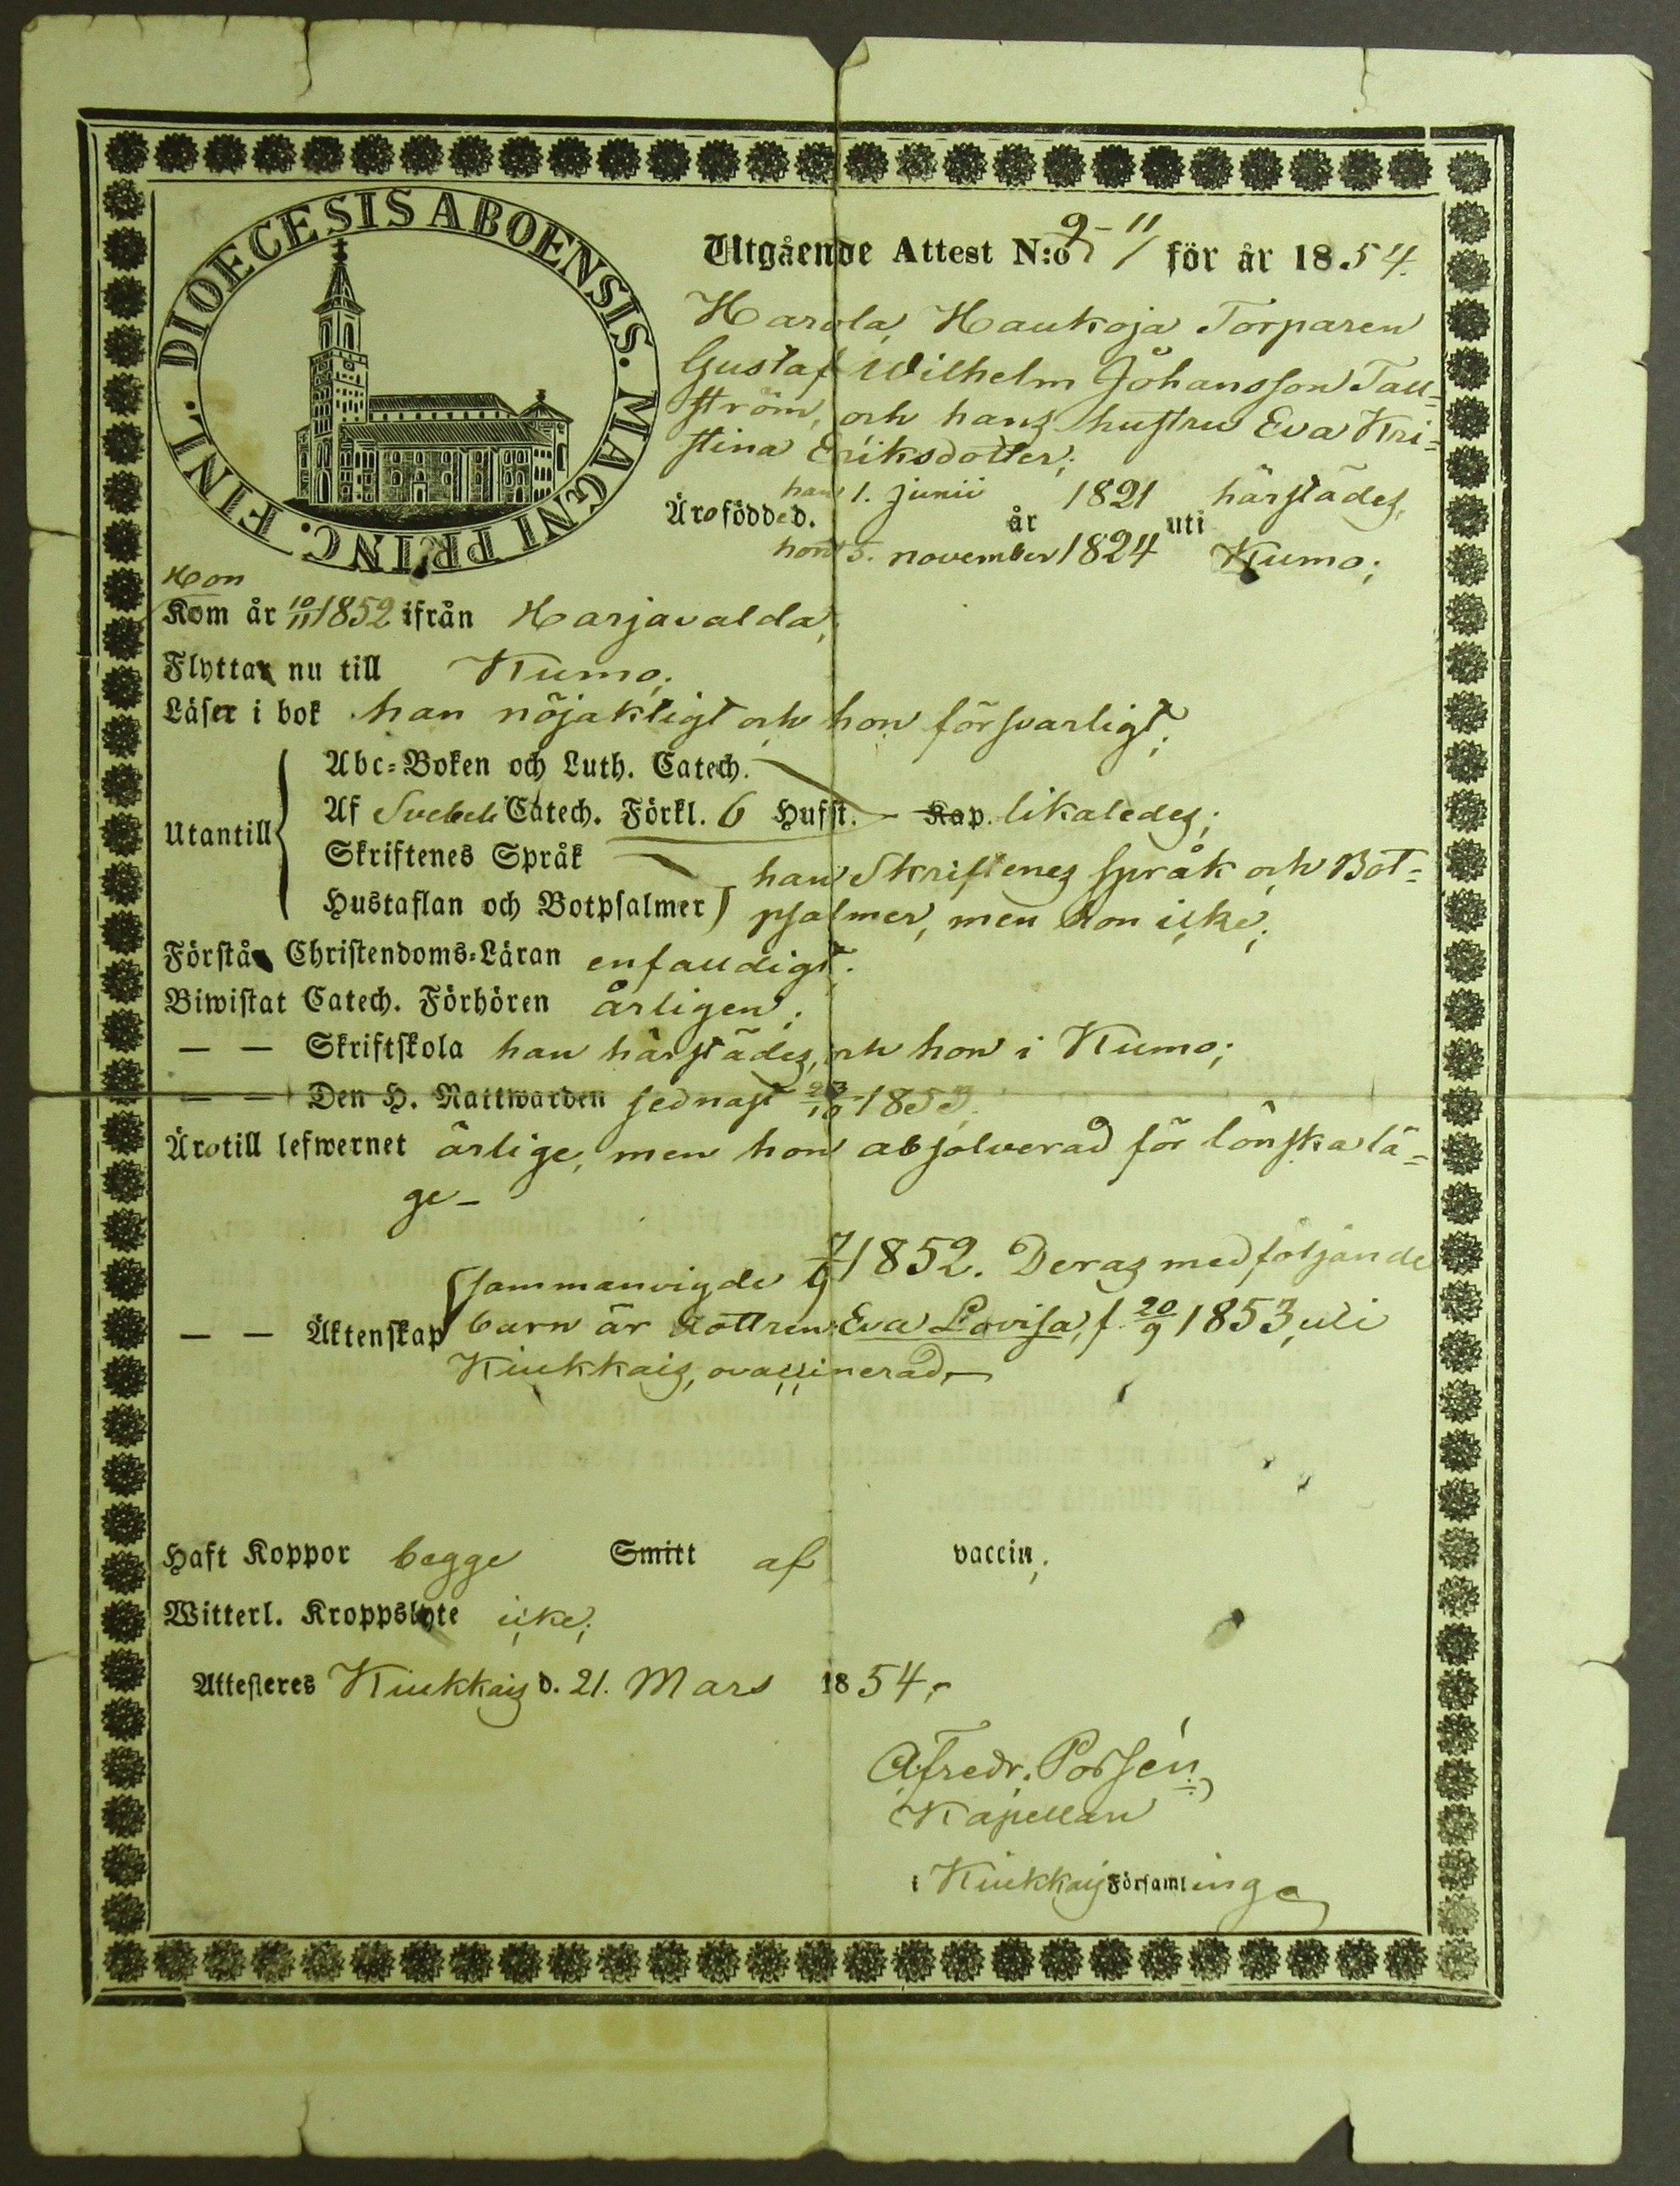 DIOECESIS ABOENSIS. MAGNI PRINC. FINL.
Utgående Attest N:o 9-11 för år 1854.
Harola, Haukoja Torparen
Gustaf Wilhelm Johansson Tall=
ström, och hans hustru Eva Kri=
stina Eriksdotter;
Äro födde d. han 1. junii år 1821 uti härstädes,
hon 5. november 1824 Kumo;
Hon
Kom år 10/11 1852 ifrån Harjavalda,
Flytta nu till Kumo;
Läser i bok han nöjaktigt och hon försvarligt;
Utantill
Abc=Boken och Luth. Catech.
Af Svebeli Catech. Förkl. 6 Hufst. Kap. likaledes;
Skriftenes Språk han Skriftenes språk och Bot=
Hustaflan och Botpsalmer psalmer, men hon icke;
Förstå Christendoms=Läran enfaldigt;
Biwistat Catech. Förhören årligen;
— — Skriftskola han härstädes, och hon i Kumo;
— — Den H. Nattwarden sednast 23/10 1853.
Äro till lefwernet ärlige, men hon absolverad för lönskalä=
ge—
sammanvigde 7/9 1852. Deras medföljande
— — Äktenskap barn är dottren: Eva Lovisa, f. 20/9 1853, uti
Kiukkais, ovaccinerad—
Haft Koppor begge Smitt af vaccin;
Witterl. Kroppslyte icke;
Attesteres Kiukkais d. 21. Mars 1854,-
A. Fredr. Porsén
Kapellan
i Kiukkais Församling